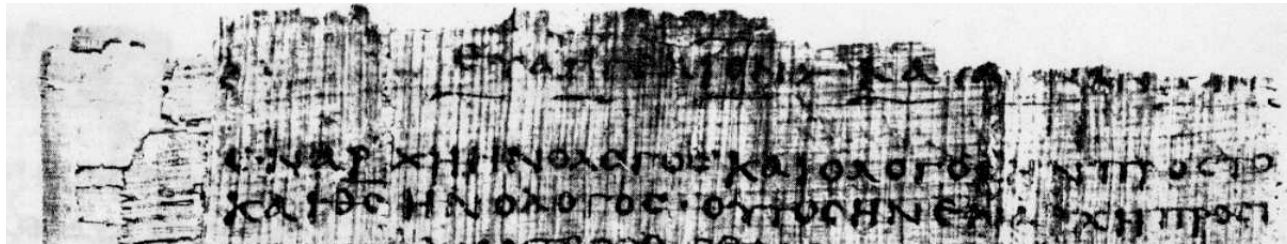 ΕΥΑΓΓΕΛΙΟΝ ΚΑΤΑ
ΕΝΑΡΧΗΗΝΟΛΟΓΟΣ ΚΑΙΟΛΟΓΟΣΗΝΠΡΟΣΤΟ
ΚΑΙΘΣΗΝΟΛΟΓΟΣ·ΟΥΤΟΣΗΝΕΝΑΡΧΗΠΡΟΣΤ